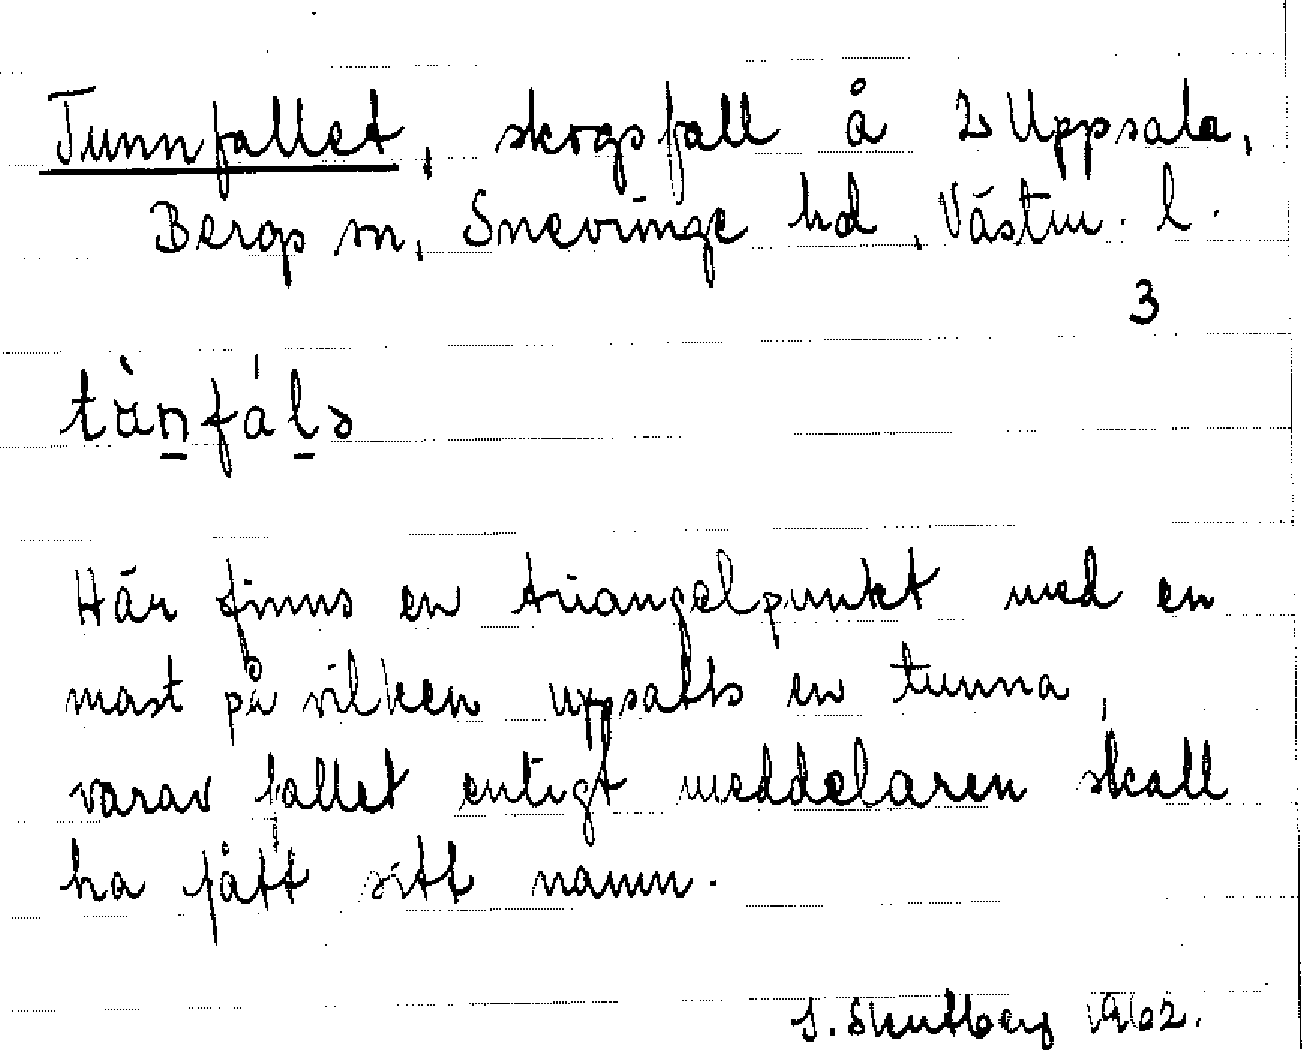 Tunnfallet, skogsfall å Uppsala,
Bergs sn, Snevringe hd, Västm. l.
3
Här finns en triangelpunkt med en
mast på vilken uppsatts en tunna,
varav fallet enligt meddelaren skall
ha fått sitt namn.
S. Skutberg 1962.